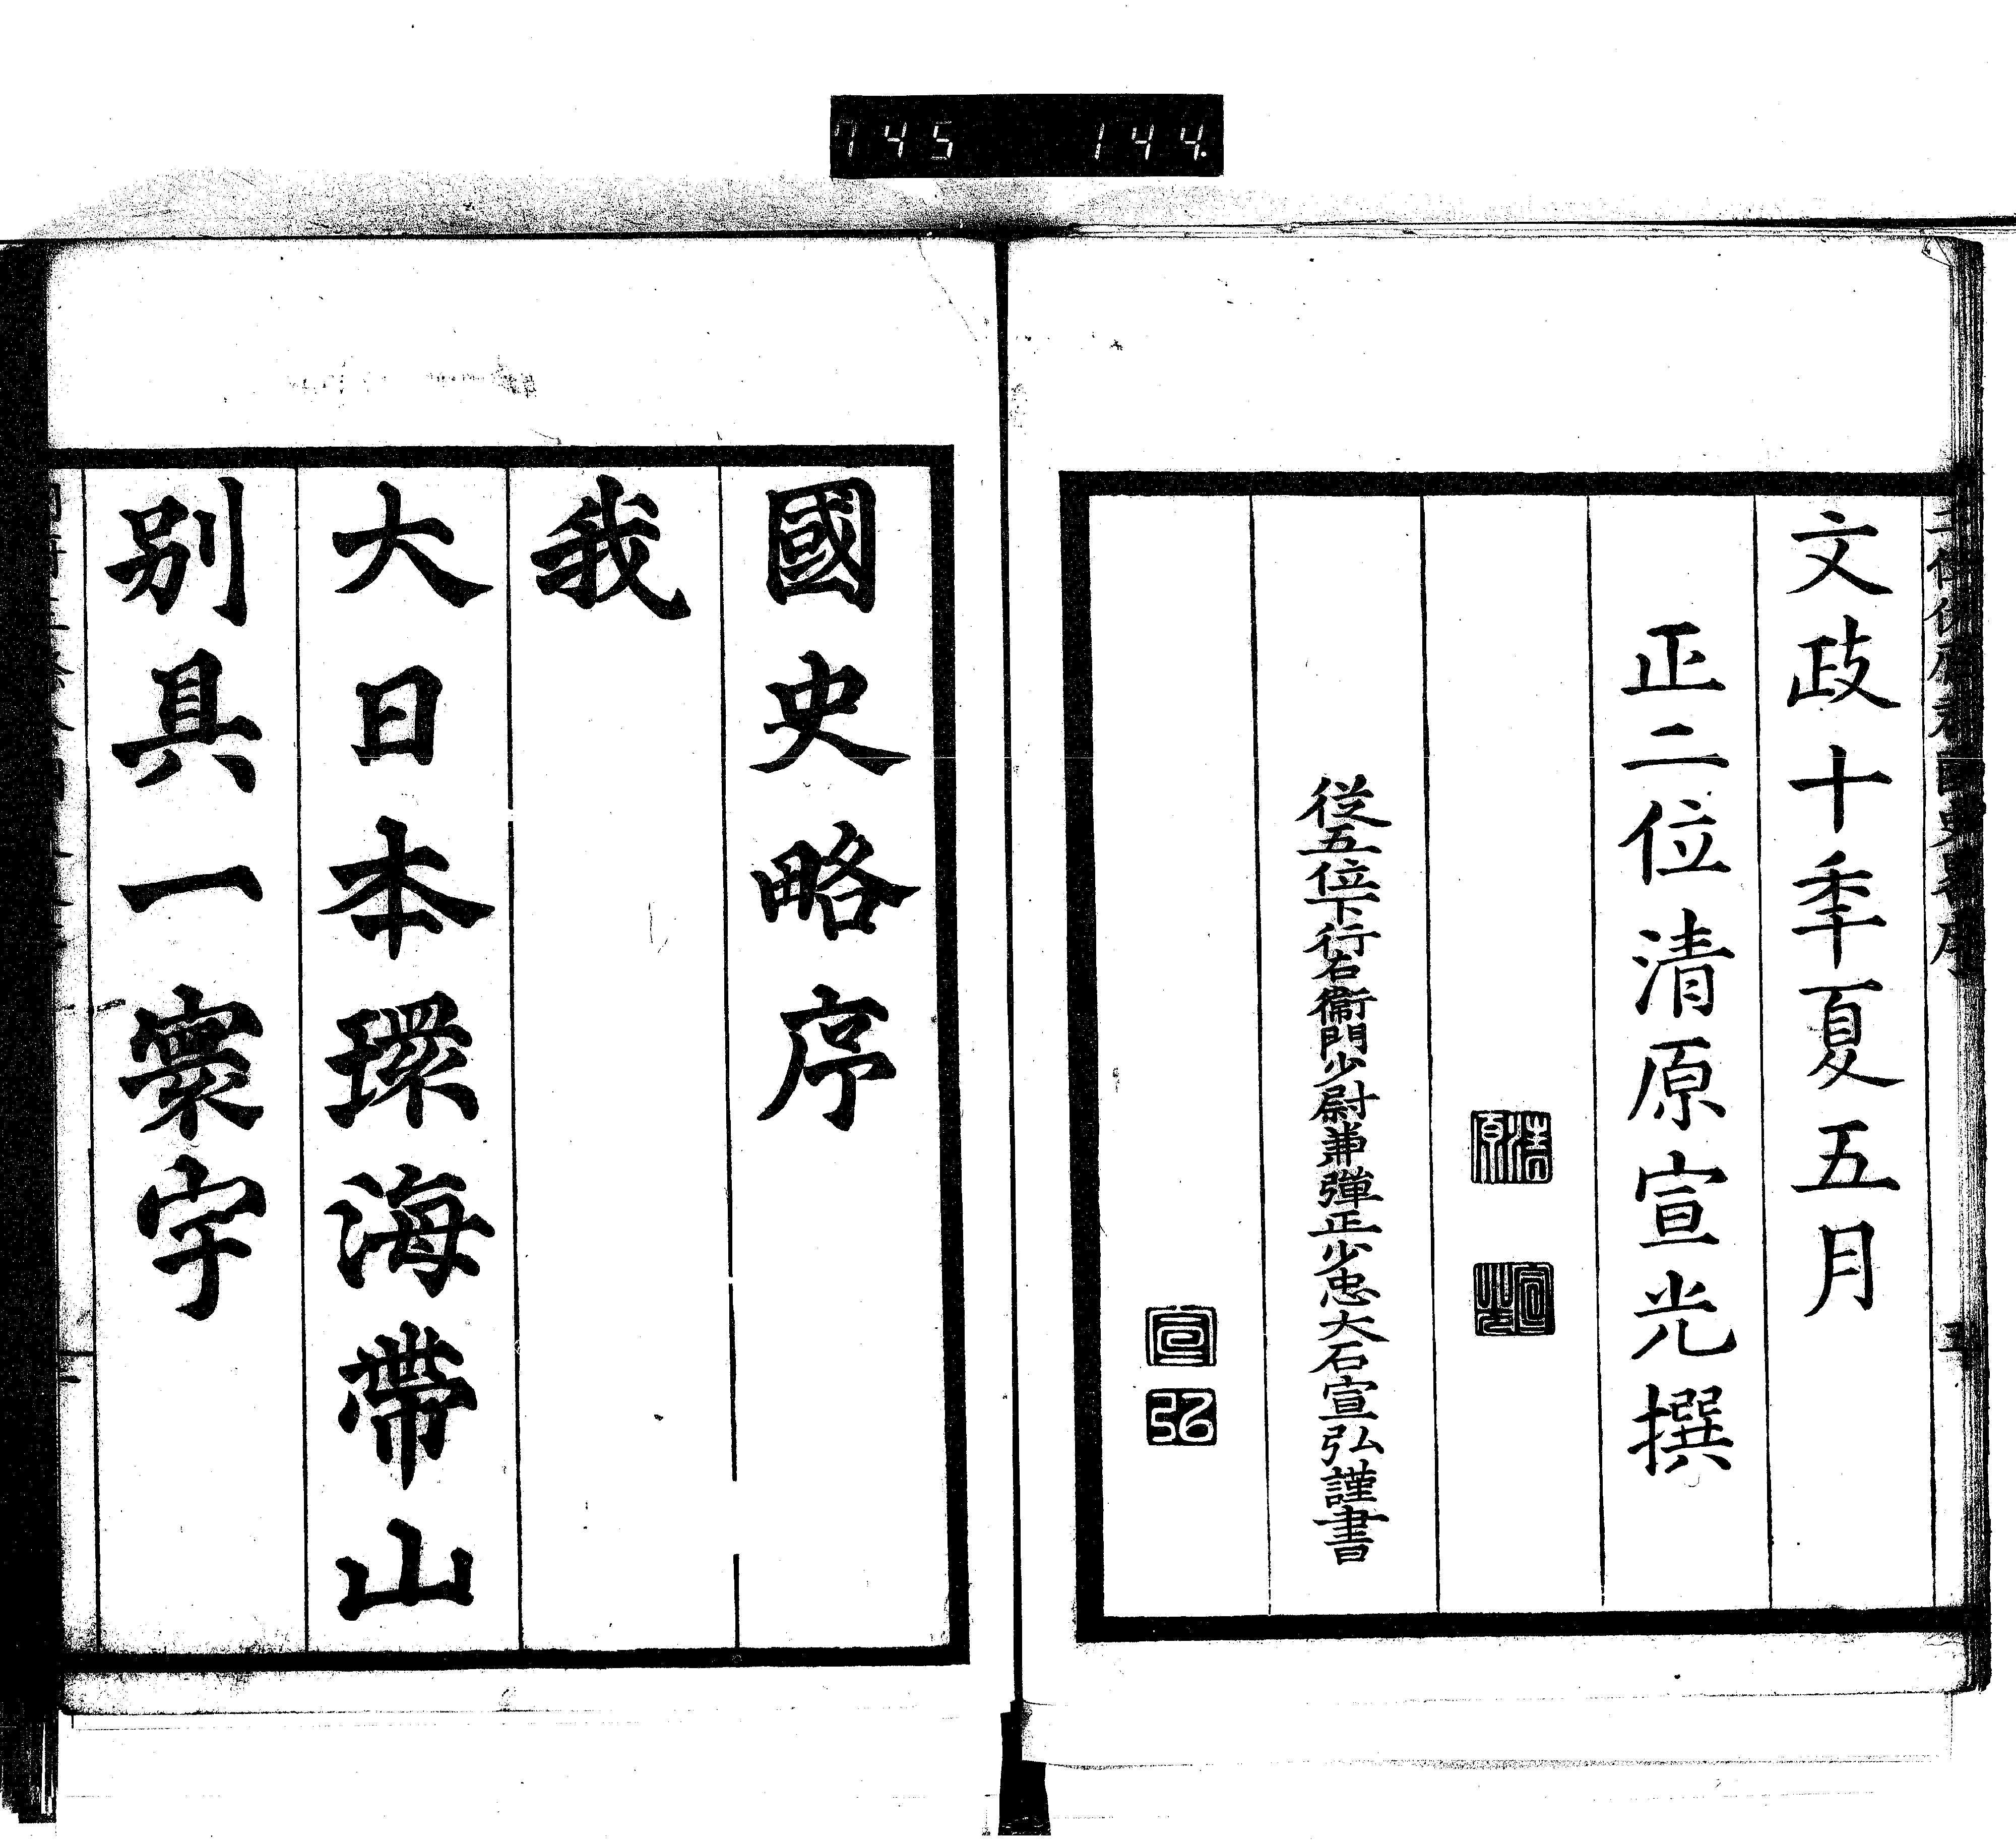 745 144.
文政十秊夏五月
正二位清原宣光撰
清原
宣光
從五位下行右衞門少尉兼彈正少忠大石宣弘謹書
宣
弘
國史略序
我
大日本環海帶山
別具一寰宇